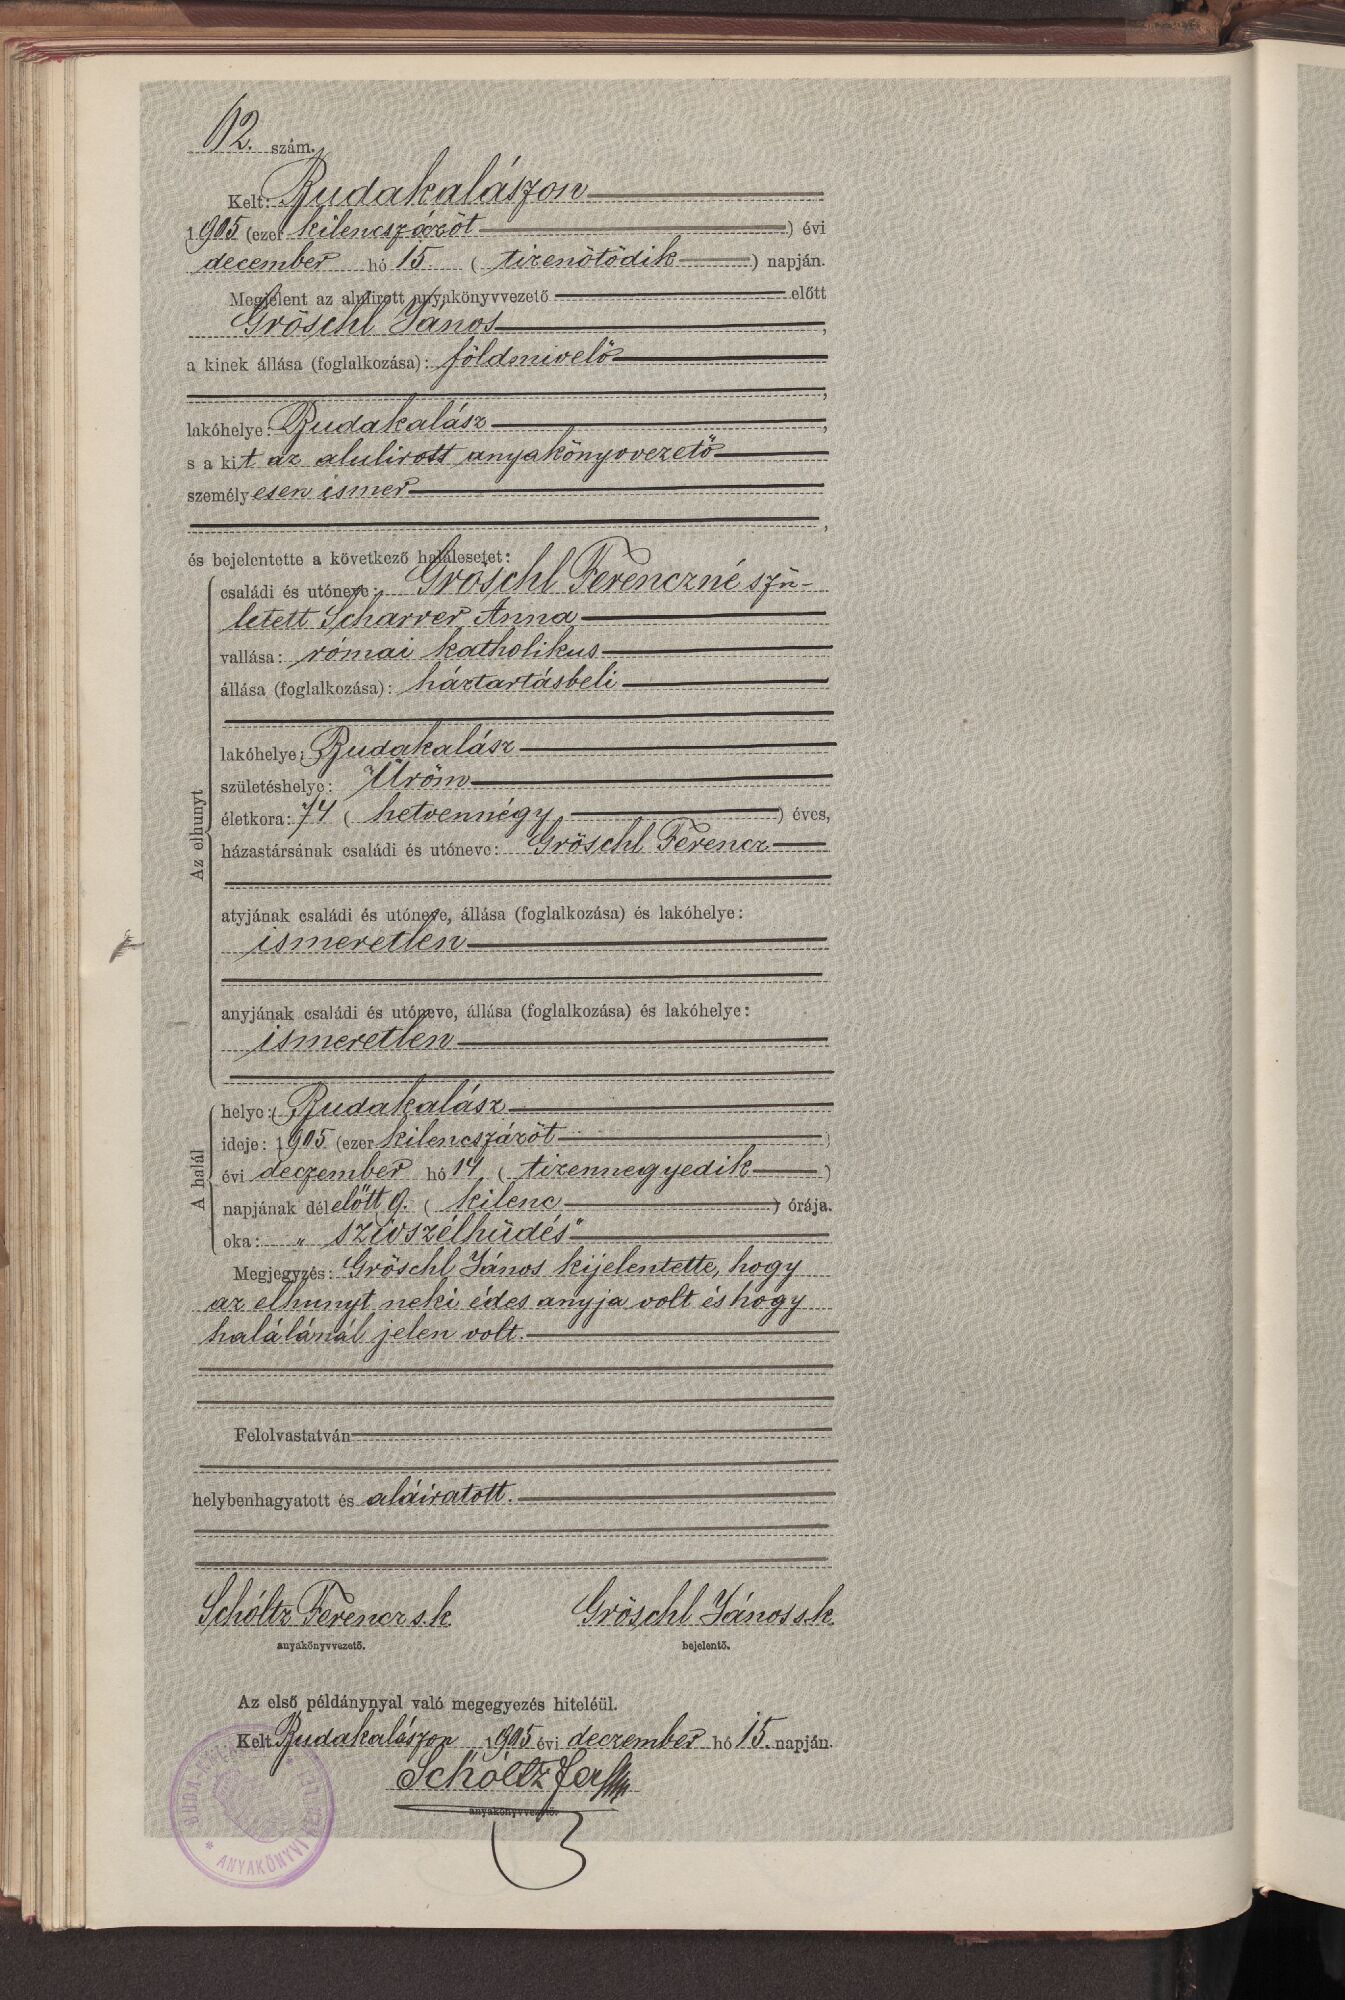 62. szám.
Kelt: Budakalászon
1905 (ezer kilencszázöt ) évi
december hó 15. ( tizenötödik ) napján.
Megjelent az alulirott anyakönyvvezető előtt
Gröschl János,
a kinek állása (foglalkozása): földmivelő
,
lakóhelye: Budakalász,
s a kit az alulirott anyakönyvvezető
személyesen ismer
,
és bejelentette a következő halálesetet:
Az elhunyt
családi és utóneve: Gröschl Ferenczné szü-
letett Scharrer Anna
vallása: római katholikus
állása (foglalkozása): háztartásbeli
lakóhelye: Budakalász
születéshelye: Üröm
életkora: 74 ( hetvennégy ) éves,
házastársának családi és utóneve: Gröschl Ferencz
atyjának családi és utóneve, állása (foglalkozása) és lakóhelye:
ismeretlen
anyjának családi és utóneve, állása (foglalkozása) és lakóhelye:
ismeretlen
A halál
helye: Budakalász
ideje: 1905 (ezer kilencszázöt )
évi deczember hó 14 ( tizennegyedik )
napjának délelőtt 9. ( kilenc ) órája.
oka: „szivszélhüdés"
Megjegyzés: Gröschl János kijelentette, hogy
az elhunyt neki édes anyja volt és hogy
halálánál jelen volt.
Felolvastatván
helybenhagyatott és aláiratott.
Schóltz Ferencz s.k. Gröschl János s.k.
anyakönyvvezető. bejelentő.
Az első példánynyal való megegyezés hiteléül.
Kelt Budakalászon 1905 évi deczember hó 15. napján.
Schóltz
anyakönyvvezető.
ANYAKÖNYVI